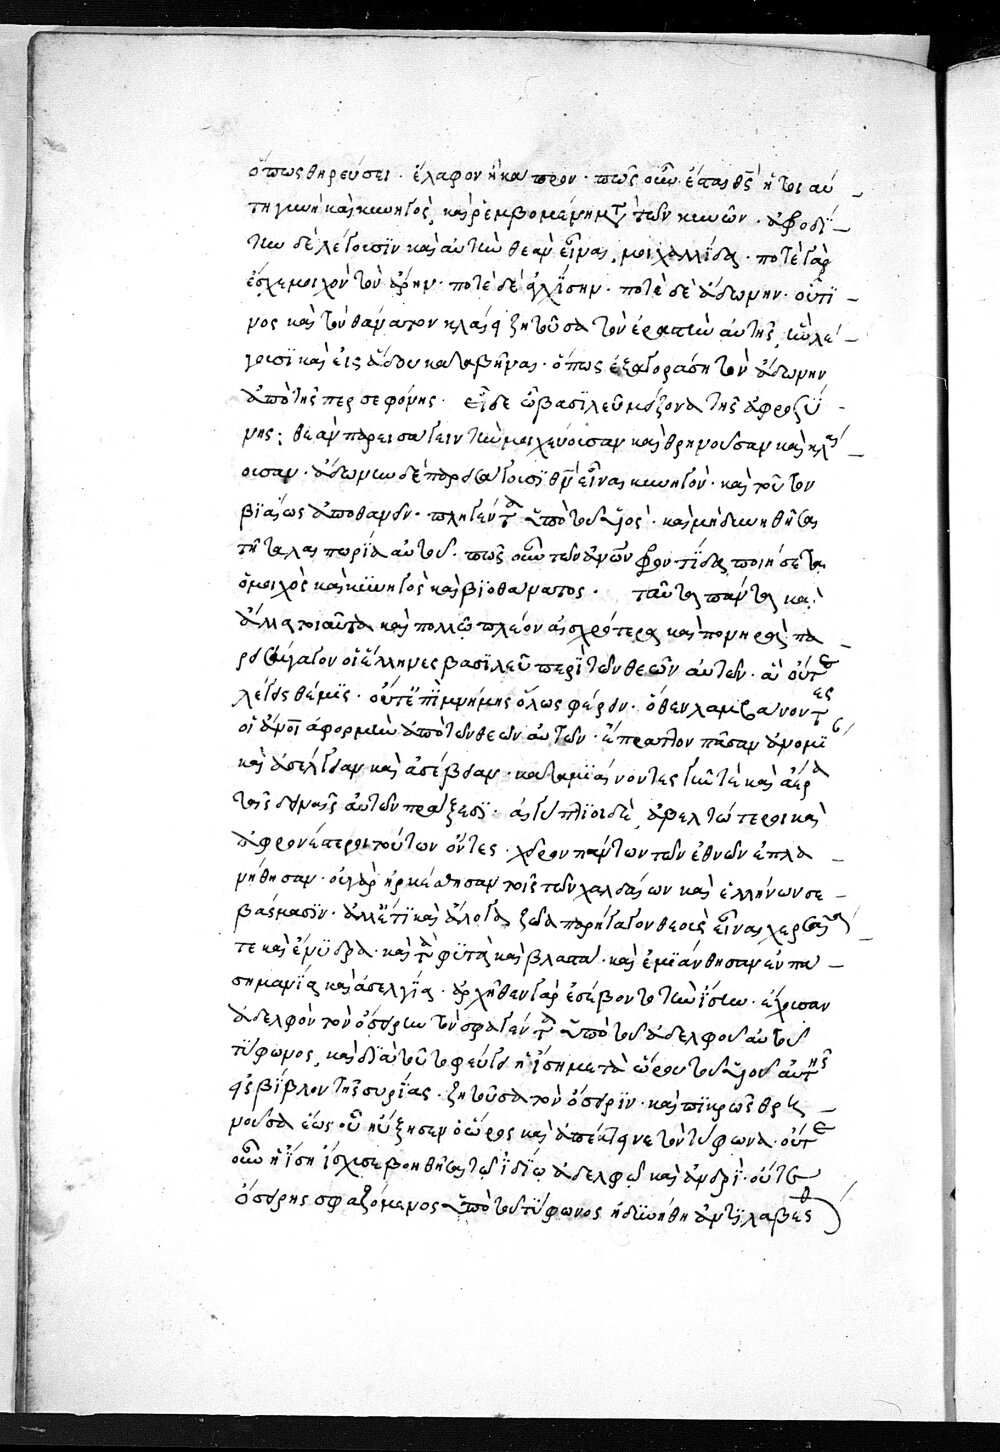 ὅπως θηρεύσει · ἔλαφον ἢ κάπρον · πῶς οὖν ἔσται θς̅ ἡ τοιαύ
τη γυνὴ καὶ κυνηγὸς καὶ ῥεμβομένη μτ̀ τῶν κυνῶν · ἀφροδί
την δὲ λέγουσϊν καὶ αὐτὴν θεὰν εἶναι, μοιχαλλίδα · ποτὲ γὰρ
ἔσχε μοιχὸν τὸν ἄρην · ποτὲ δὲ ἀγχίσην · ποτὲ δὲ ἄδωνην · οὗτϊ
νος καὶ τὸν θάνατον κλαίει ζητοῦσα τὸν ἐραστὴν αὐτῆς, ἣν λέ
γουσϊ καὶ εἰς ἅδου καταβῆναι · ὅπως ἐξαγοράση τὸν ἄδωνην
ἀπὸ τῆς περσεφόνης · εἶδε ὦ βασϊλεῦ μείζονα τῆς ἀφροσύ
νης; θεὰν παρεισάγειν τὴν μοιχεύουσαν καὶ θρηνοῦσαν καὶ κλαί
ουσαν · ἄδωνιν δὲ παρεισάγουσϊ θν̅ εἶναι κυνηγόν · καὶ τοῦτον
βϊαίως ἀποθανεῖν · πληγέντα ὑπὸ τοῦ ὑὸς · καὶ μὴ δυνηθῆναι
τῆ ταλαιπωρία αὐτοῦ · πῶς οὖν τῶν ἀνῶν φροντίδα ποιήσεται
ὁ μοιχὸς καὶ κϋνηγὸς καὶ βϊοθάνατος · ταῦτα πάντα καὶ
ἄλλα τοιαῦτα καὶ πολλῶ πλεῖον αἰσχρότερα καὶ πονηρὰ πα
ρεισήγαγον οἱ ἕλληνες βασϊλεῦ περὶ τῶν θεῶν αὐτῶν · ἃ οὔτε
λέγειν θέμϊς · οὔτ' ἐπὶ μνήμης ὅλως φέρειν · ὅθεν λαμβάνοντες
οἱ ἄνοι ἀφορμὴν ἀπὸ τῶν θεῶν αὐτῶν · ἔπραττον πᾶσαν ἀνομϊ
καὶ ἀσέλγειαν καὶ ἀσέβειαν · καταμϊαίνοντες γῆν τὲ καὶ ἀέρα
ταῖς δειναῖς αὐτῶν πράξεσϊ · αἰγύπτϊοι δὲ, ἀβελτώτεροι καὶ
ἀφρονέστεροι τούτων ὄντες · χεῖρον πάντων τῶν ἐθνῶν ἐπλα
νήθησαν · οὐ γὰρ ἠρκέσθησαν τοῖς τῶν χαλδαίων καὶ ἑλλήνων σε
βάσμασϊν · ἀλλ' ἔτϊ καὶ ἄλογα ζῶα παρήγαγον θεοὺς εἶναι χερσαῖά
τε καὶ ἔνϋδρα · καὶ τὰ φϋτὰ καὶ βλαστά · καὶ ἐμϊάνθησαν ἐν πά
ση μανία καὶ ἀσελγία · ἀρχῆθεν γὰρ ἐσέβοντο τὴν ἴσιν · ἔχουσαν
ἀδελφὸν τὸν ὄσυριν τὸν σφαγέντα ὑπὸ τοῦ ἀδελφοῦ αὐτοῦ
τϋφωνος, καὶ δϊὰ τοῦτο φεύγει ἡ ἴσις μετὰ ὥρου τοῦ ὑιοῦ αὐτῆς
εἰς βίβλον τῆς συρίας · ζητοῦσα τὸν ὄσυρϊν · καὶ πϊκρῶς θρη
νοῦσα ἕως οὗ ηὔξησεν ὁ ὧρος καὶ ἀπέκτεινε τὸν τύφωνα · οὔτε
οὖν ἡ ἴση ἴσχυσε βοηθῆσαι τῶ ἰδϊω ἀδελφῶ καὶ ἀνδρὶ · οὔτε
ὄσυρης σφαζόμενος ὑπὸ τοῦ τϋφωνος ἠδϋνήθη ἀντϊλαβέσθ